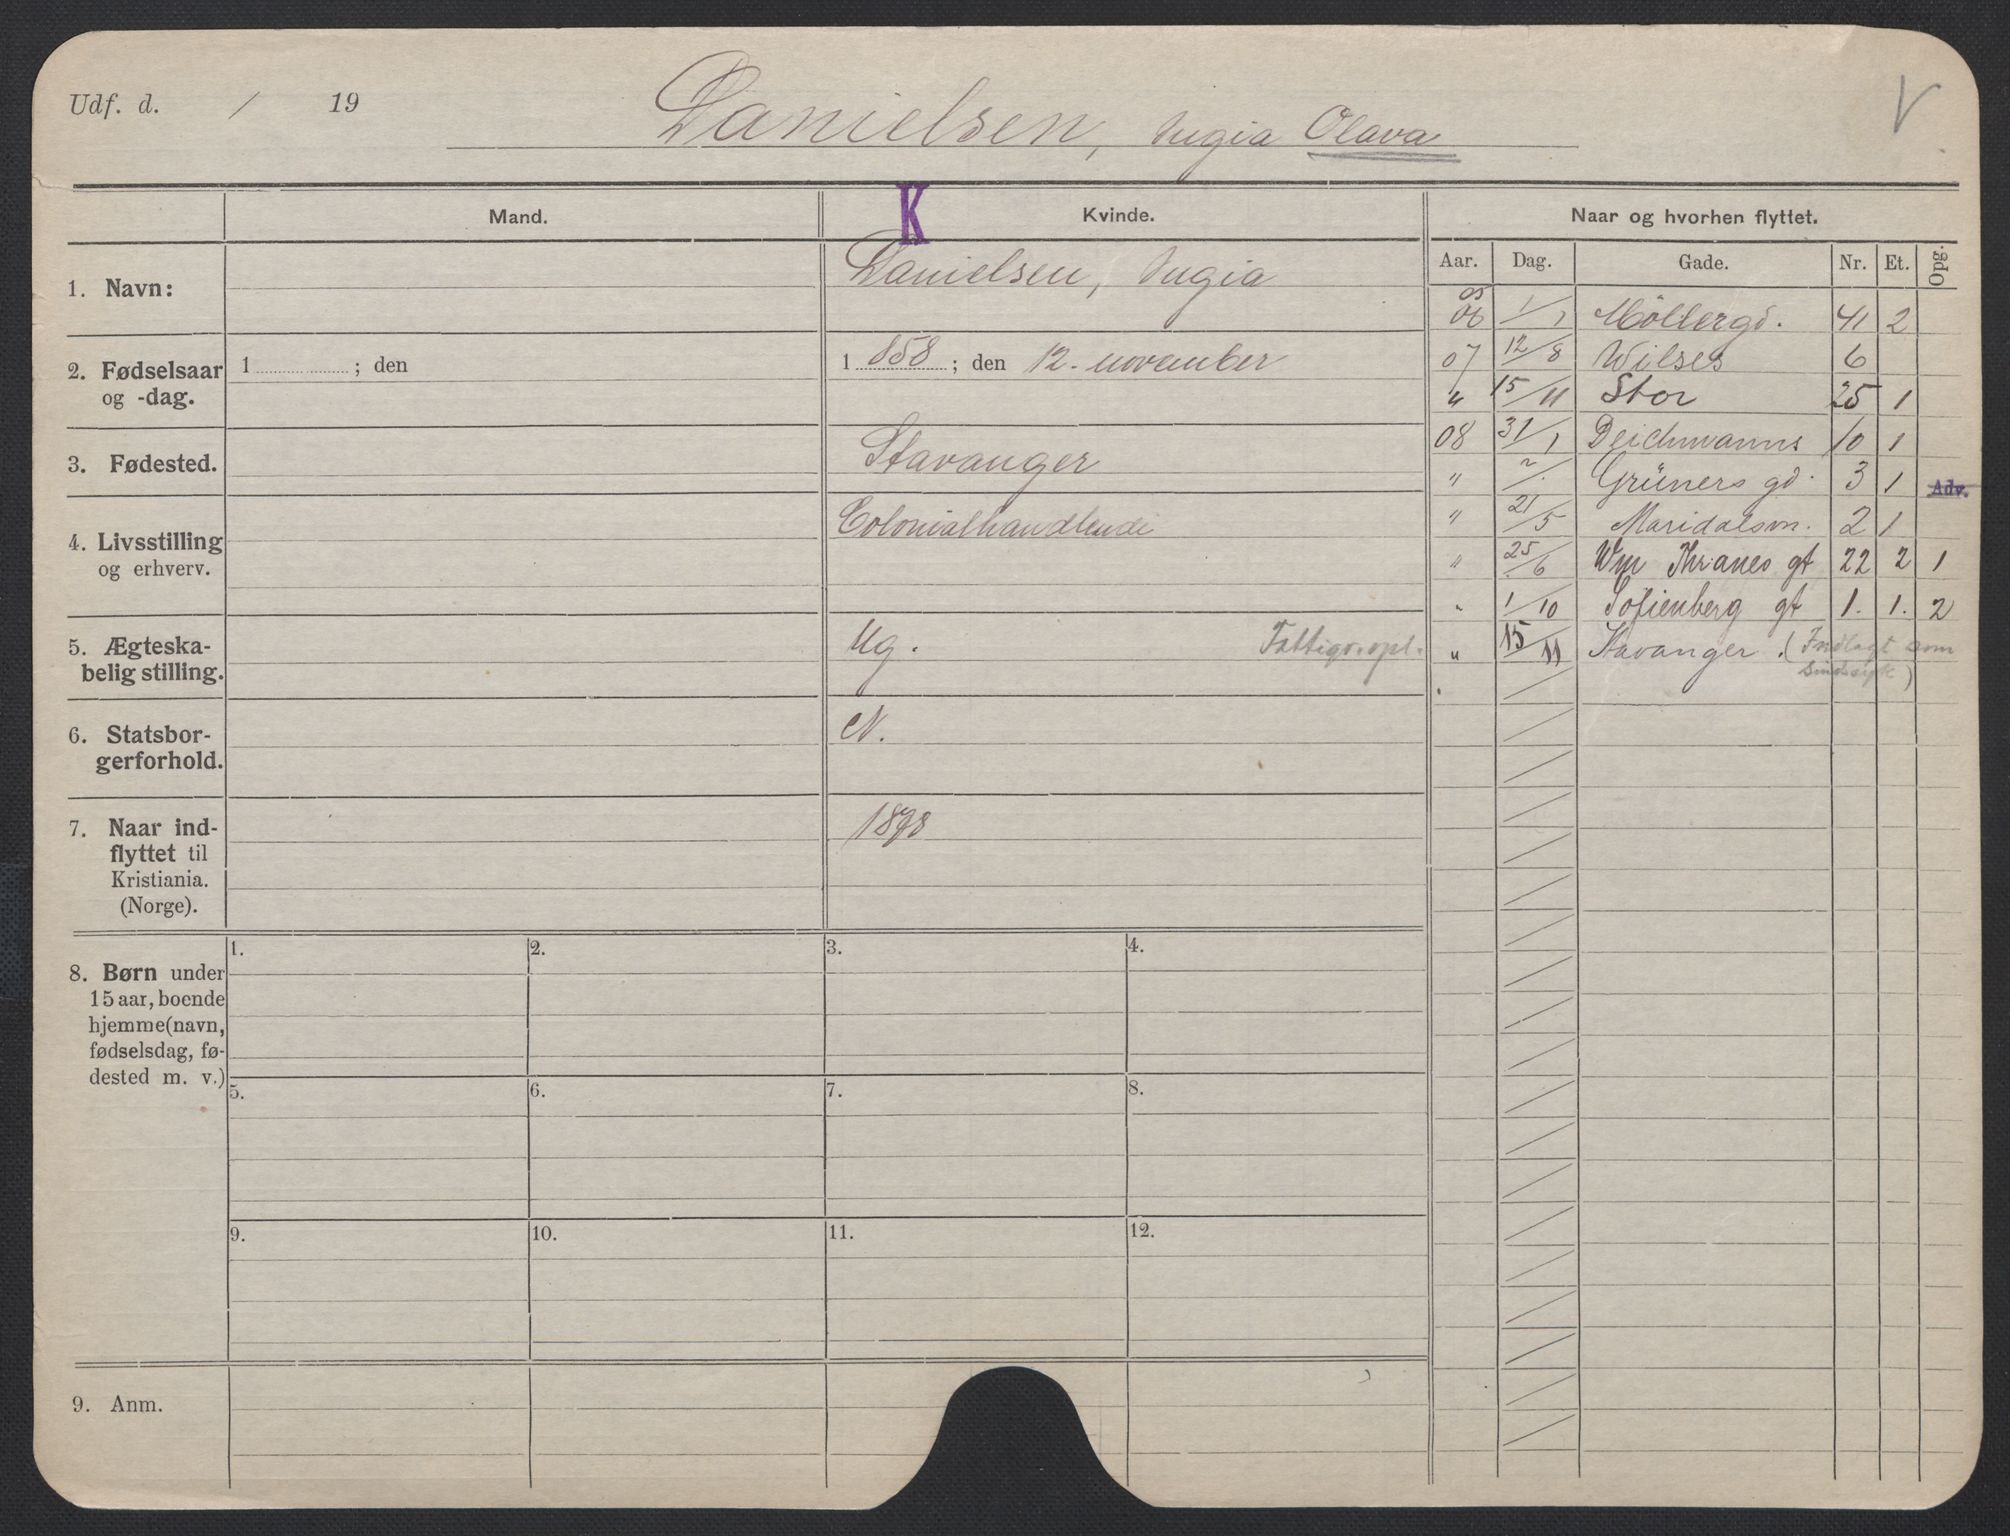 Udf. d. / 19
Danielsen, Olava
V
K
Mand.
Kvinde.
Naar og hvorhen flyttet.
Aar. Dag. Gade. Nr. Et. Opg.
1. Navn:
Danielsen,
2. Fødselsaar
og -dag.
1 ; den
1 858 ; den 12. november
3. Fødested.
Stavanger
4. Livsstilling
og erhverv.
Colonialhandlende
5. Ægteska-
belig stilling.
Ug. Fattigv. opl.
6. Statsbor-
gerforhold.
N.
7. Naar ind-
flyttet til
Kristiania.
(Norge).
1898
05
06 1/1 Möllergd. 41 2
07 12/8 Wilses 6
" 15/11 Stor 25 1
08 31/1 Deichmanns 10 1
" ?/. Grüners gd. 3 1 Adv.
" 21/5 Maridalsvn. 2 1
" 25/6 Wm Thranes gt 22 2 1
" 1/10 Sofienberg gt 1. 1. 2
" 15/11 Stavanger. (Indlagt som
sindssyk)
8. Børn under
15 aar, boende
hjemme (navn,
fødselsdag, fø-
dested m. v.)
1. 2. 3. 4.
5. 6. 7. 8.
9. 10. 11. 12.
9. Anm.